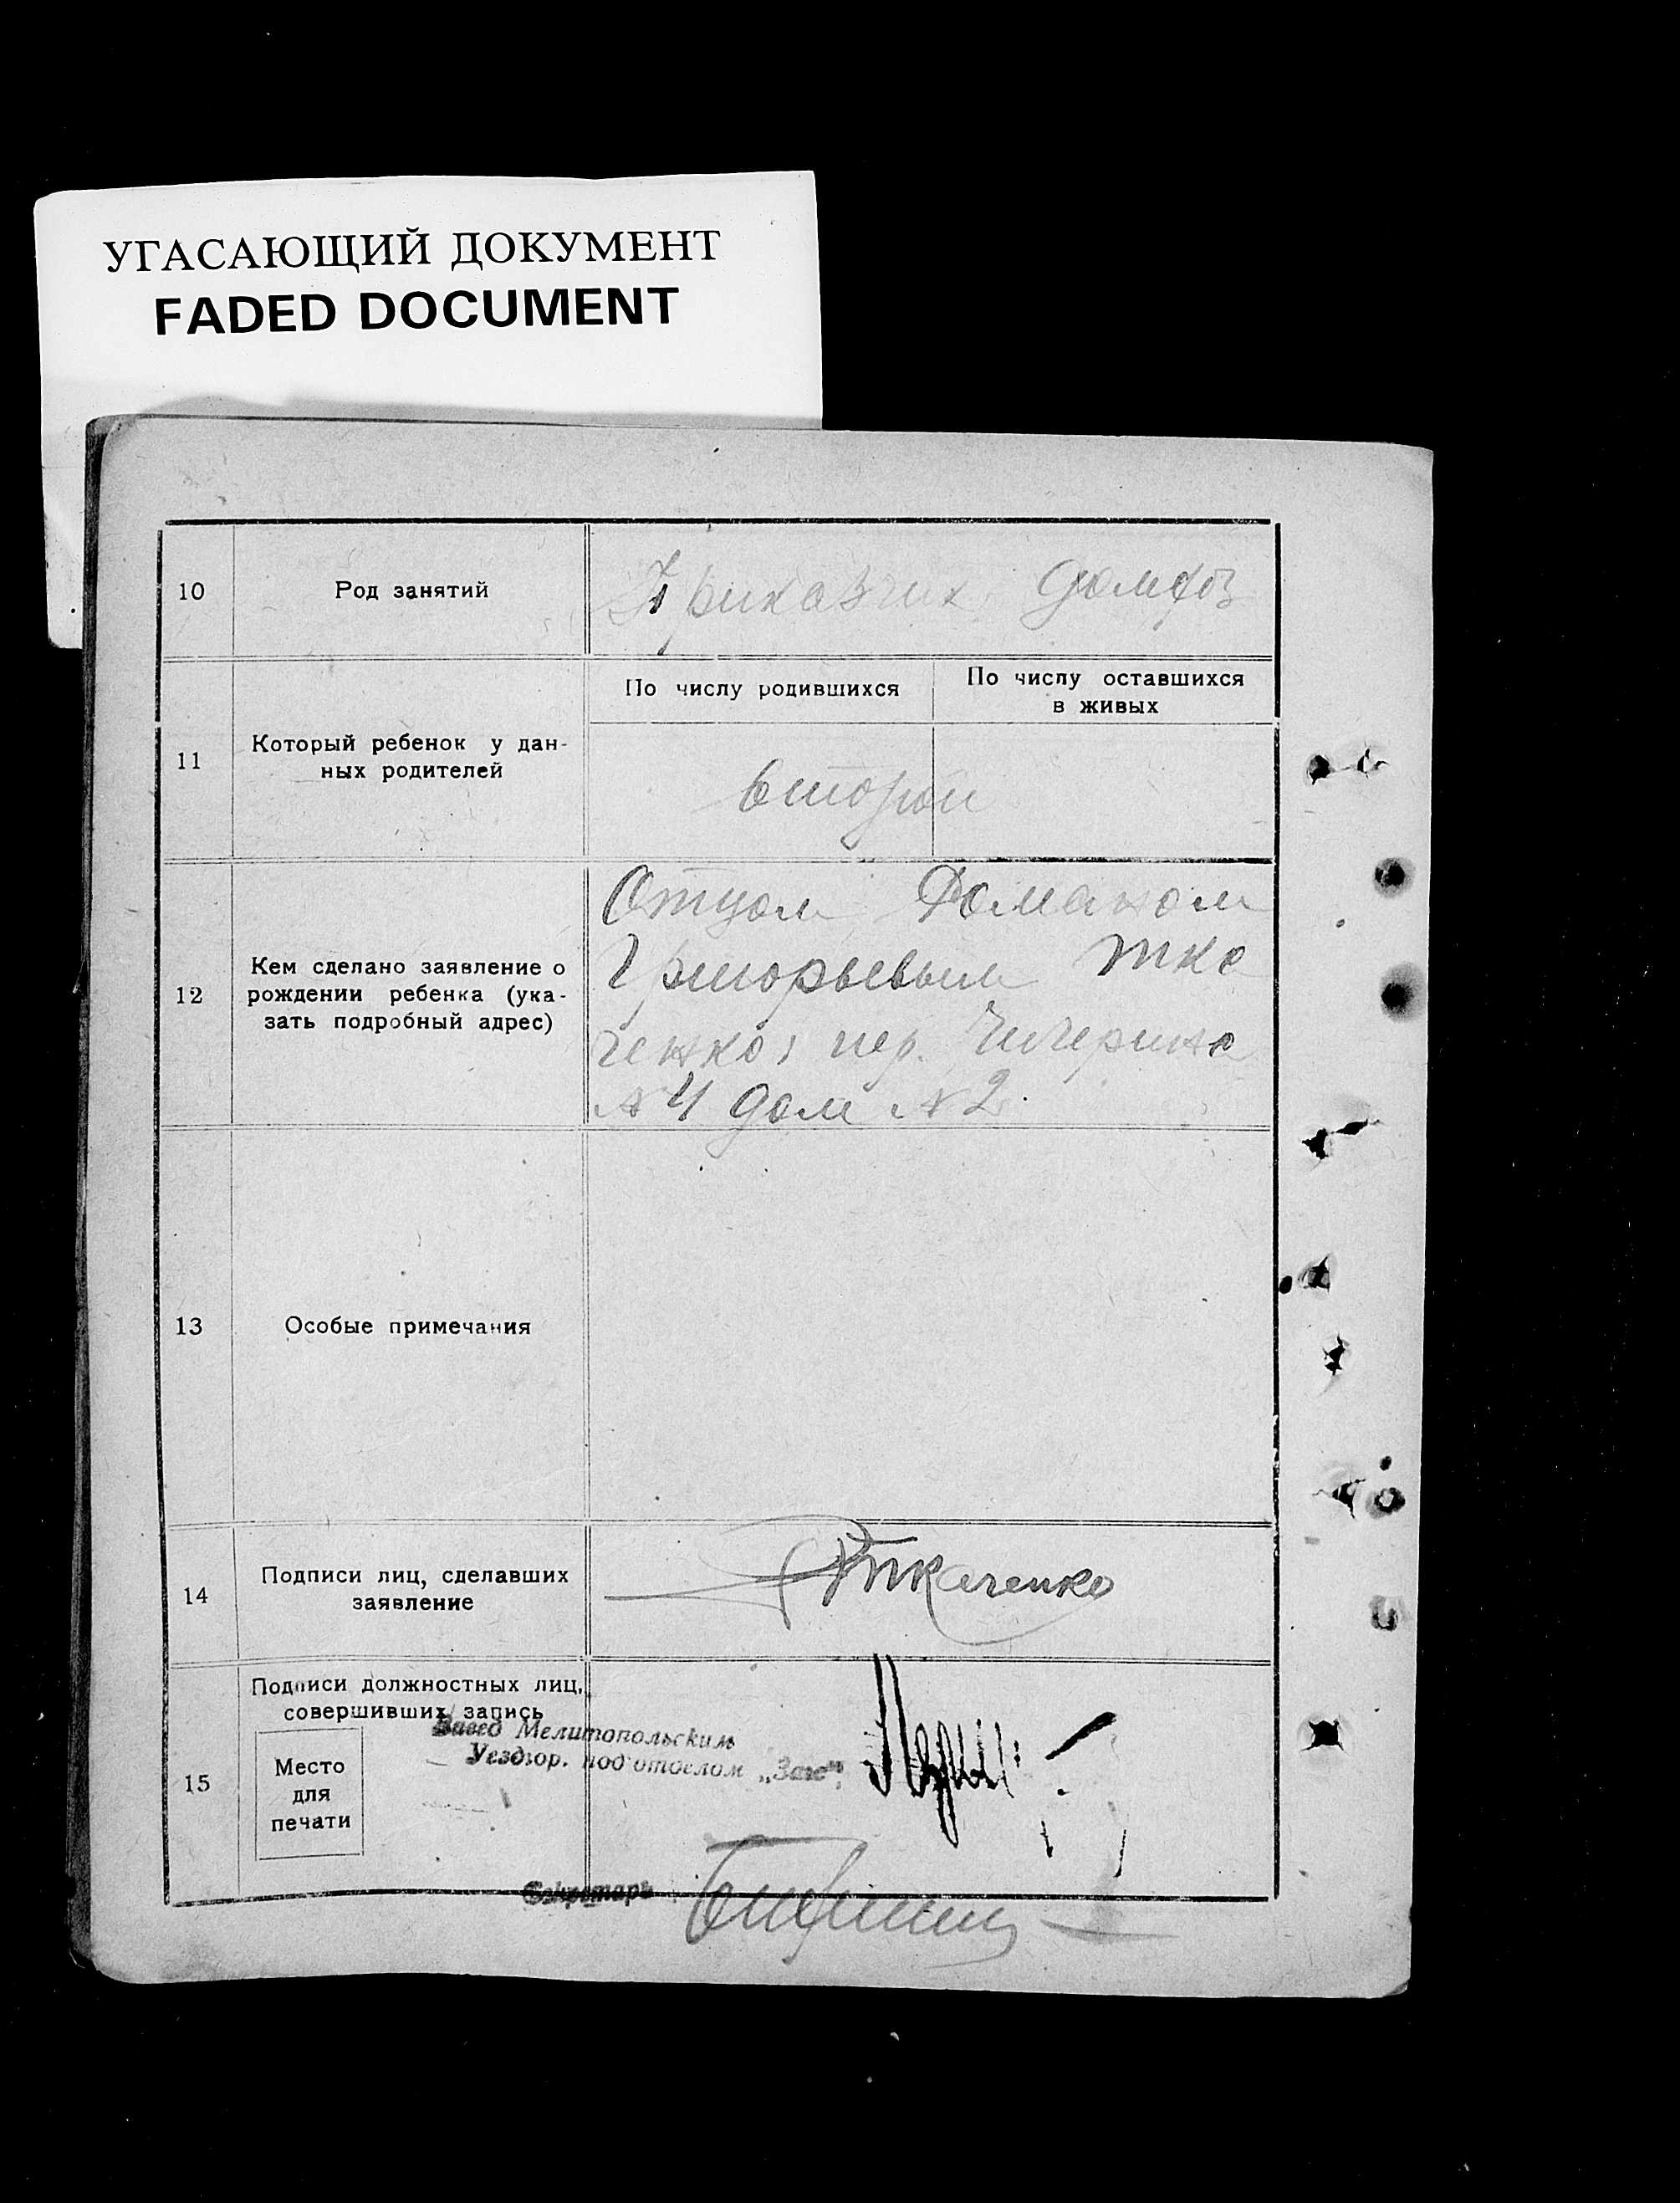 УГАСАЮЩИЙ ДОКУМЕНТ
FADED DOCUMENT
10
Род занятий
Приказчик
11
Который ребенок у дан-
ных родителей
По числу родившихся
По числу оставшихся
в живых
второй
12
Кем сделано заявление о
рождении ребенка (ука-
зать подробный адрес)
Отцом Романом
Григорьевым Тка
ченко, пер. Чичерина
№ 4 дом № 2.
13
Особые примечания
14
Подписи лиц, сделавших
заявление
РТкаченко
15
Подписи должностных лиц,
совершивших запись
Место
для
печати
Завед Мелитопольским
Уездгор. подотделом „Загс“
Секретарь